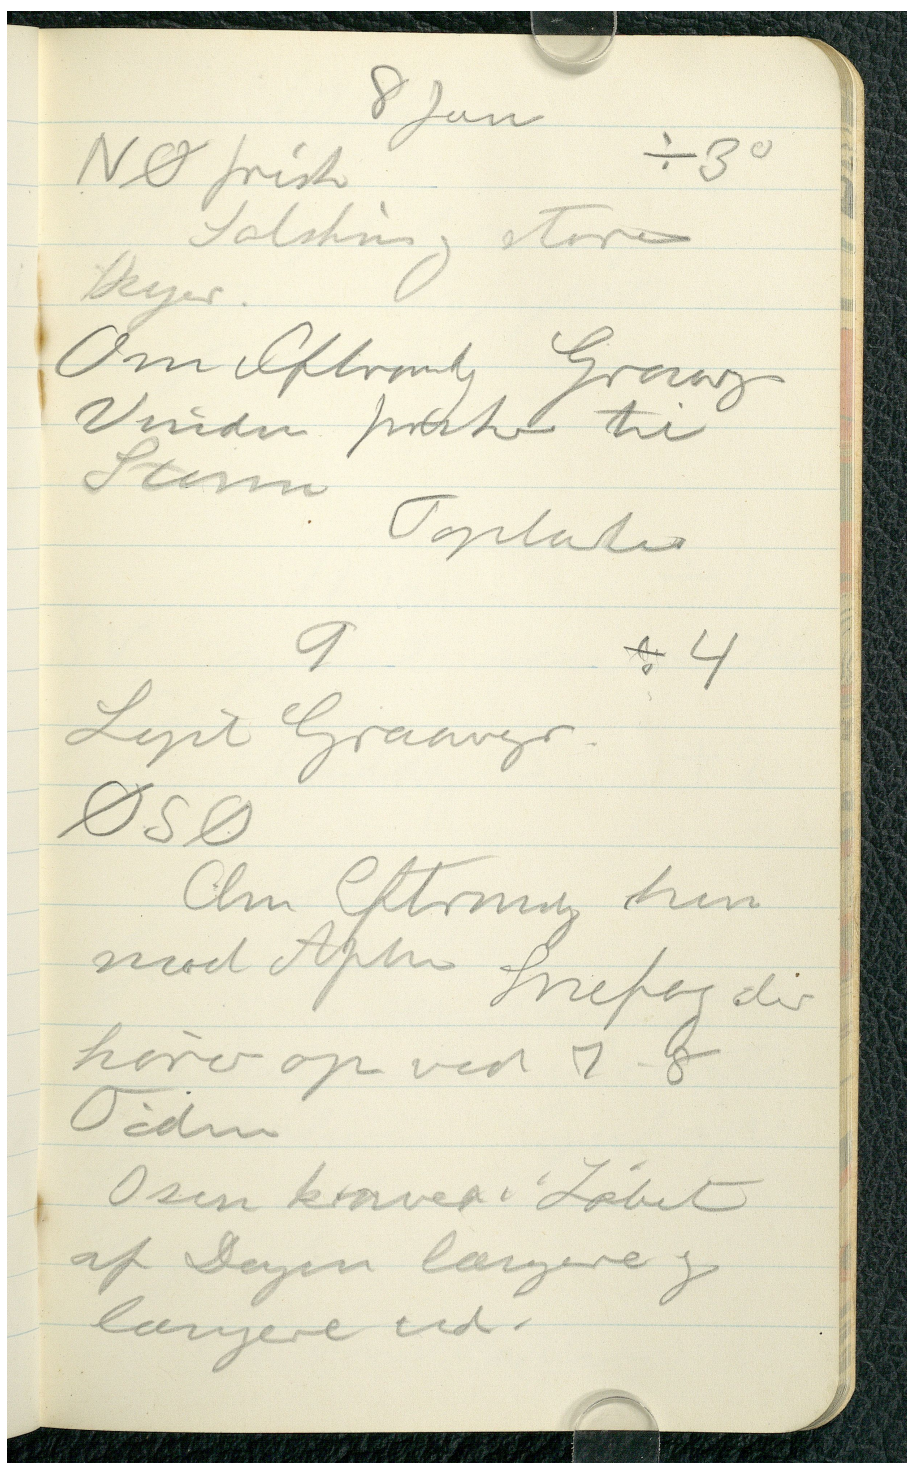 8 Jan
NØ frisk ÷3°
Solskin og store
Skyer.
Om Eftermdg Graavejr
Vinden frisker til
Storm
9 ÷ 4
Lojst Graavejr.
ØSØ
Om Eftermdg hen
mod Aften Snefog der
hører op ved 7-8
Tiden
Osen kraver i Løbet
af Dagen længere og
længere ud.